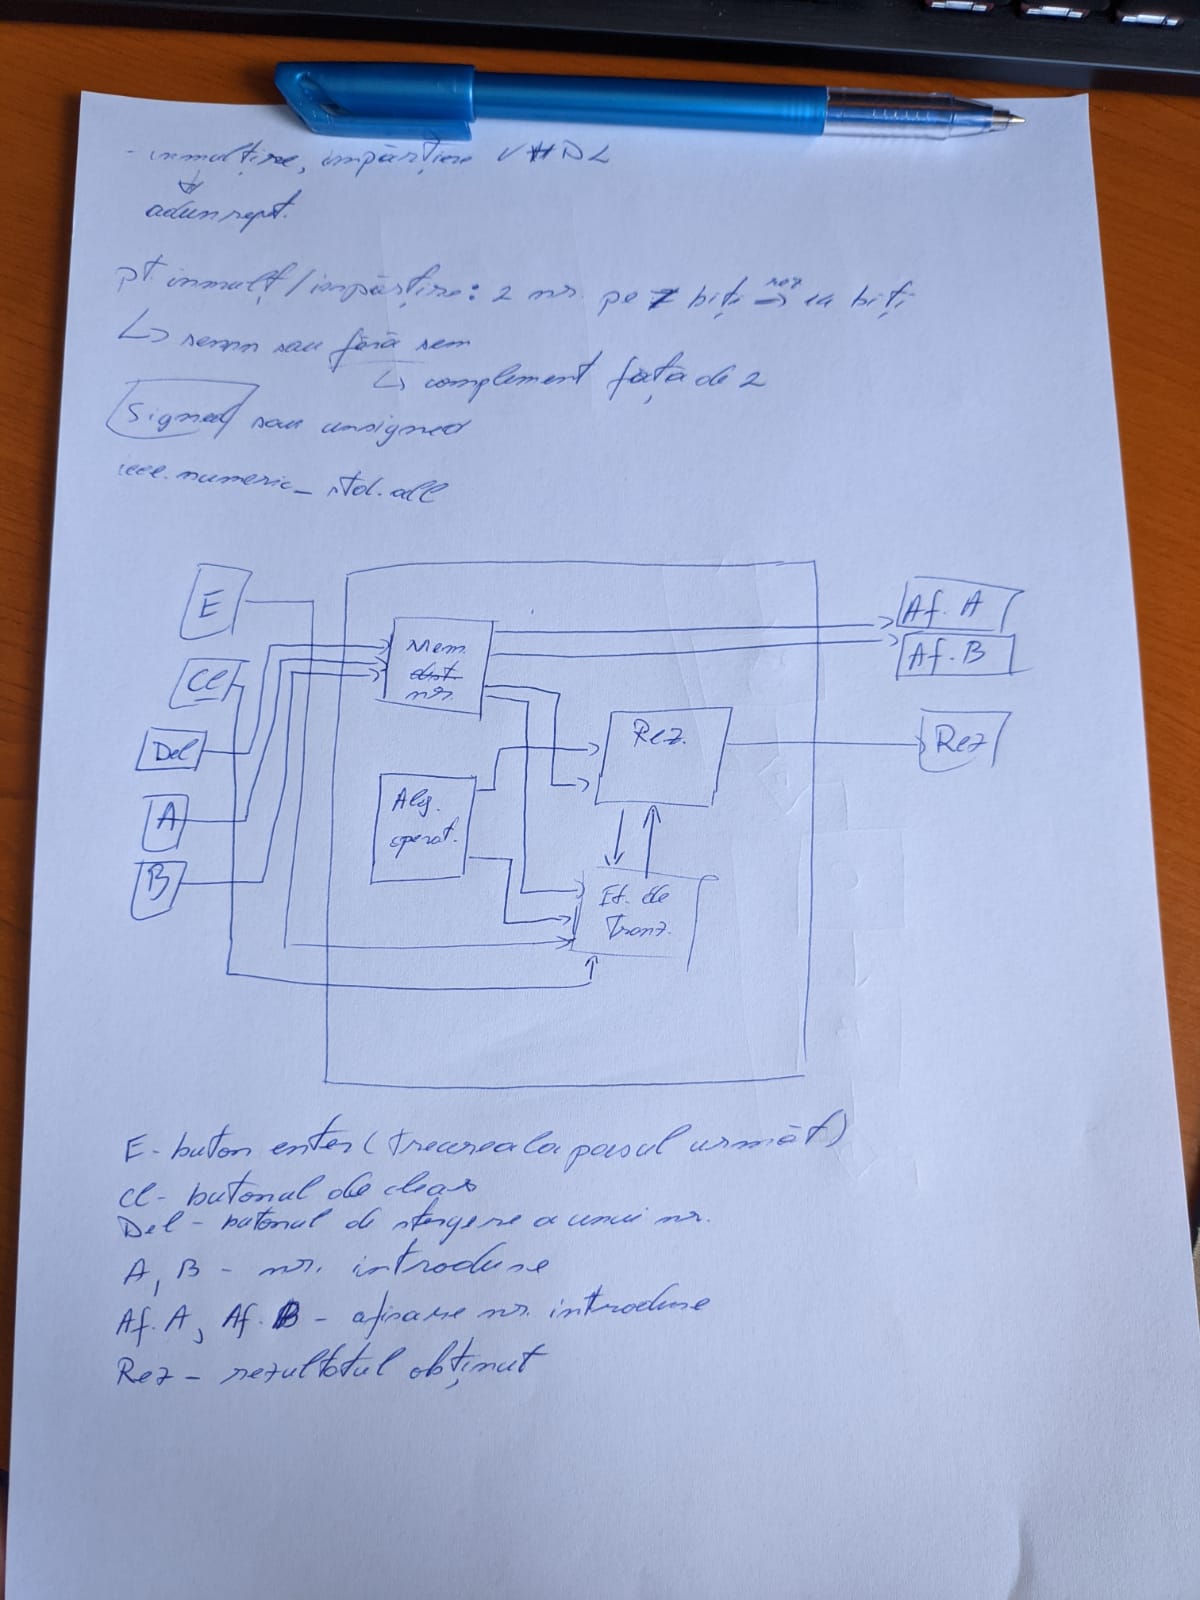 - inmulțire, impărțire VHDL
adun rept.
pt. inmulț/impărțire: 2 nr. pe 7 biți rez biți
semn sau fără sem
complement față de 2
Signed sau unsigned
ieee.numeric_std.all
E
Cl
Del
A
B
Mem.
nr.
Alg.
operat.
Rez.
Et. de
Tranz.
Af. A
Af. B
Rez
E - buton enter (trecerea la pasul următ)
Cl - butonul de clear
Del - butonul de ștergere a unui nr.
A, B - nr. introduse
Af. A, Af. B - afisare nr. introduse
Rez - rezultatul obținut